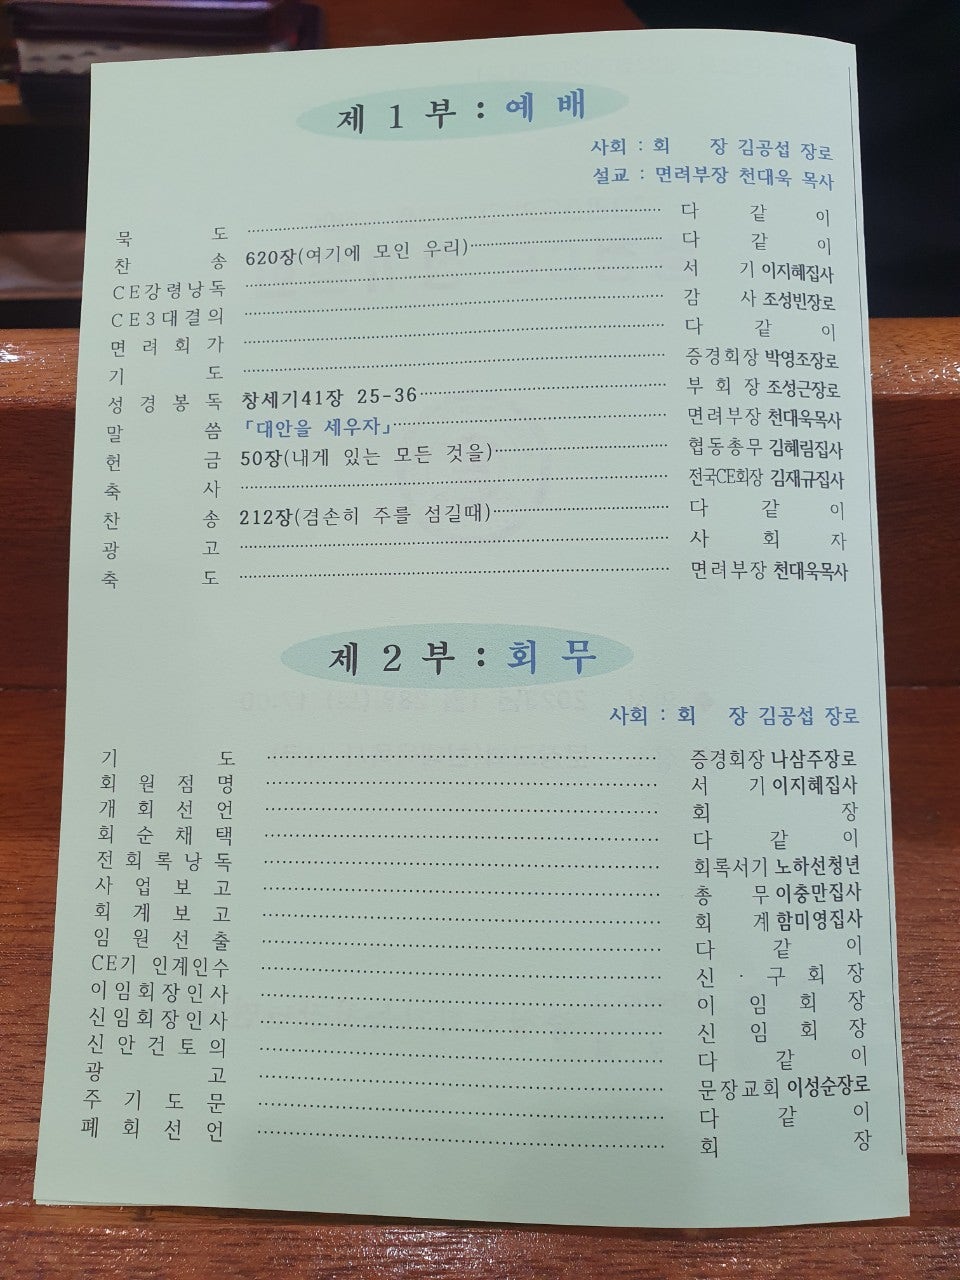 제 1 부 : 예 배
사회 : 회 장 김공섭 장로
설교 : 면려부장 천대욱 목사
묵 도 다 같 이
찬 송 620장(여기에 모인 우리) 다 같 이
CE강령낭독 서 기 이지혜집사
CE3대결의 감 사 조성빈장로
면 려 회 가 다 같 이
기 도 증경회장 박영조장로
성 경 봉 독 창세기41장 25-36 부 회 장 조성근장로
말 씀 「대안을 세우자」 면려부장 천대욱목사
헌 금 50장(내게 있는 모든 것을) 협동총무 김혜림집사
축 사 전국CE회장 김재규집사
찬 송 212장(겸손히 주를 섬길때) 다 같 이
광 고 사 회 자
축 도 면려부장 천대욱목사
제 2 부 : 회 무
사회 : 회 장 김공섭 장로
기 도 증경회장 나삼주장로
회 원 점 명 서 기 이지혜집사
개 회 선 언 회 장
회 순 채 택 다 같 이
전 회 록 낭 독 회록서기 노하선청년
사 업 보 고 총 무 이충만집사
회 계 보 고 회 계 함미영집사
임 원 선 출 다 같 이
CE기 인계인수 신 · 구 회 장
이임회장인사 이 임 회 장
신임회장인사 신 임 회 장
신 안 건 토 의 다 같 이
광 고 문장교회 이성순장로
주 기 도 문 다 같 이
폐 회 선 언 회 장